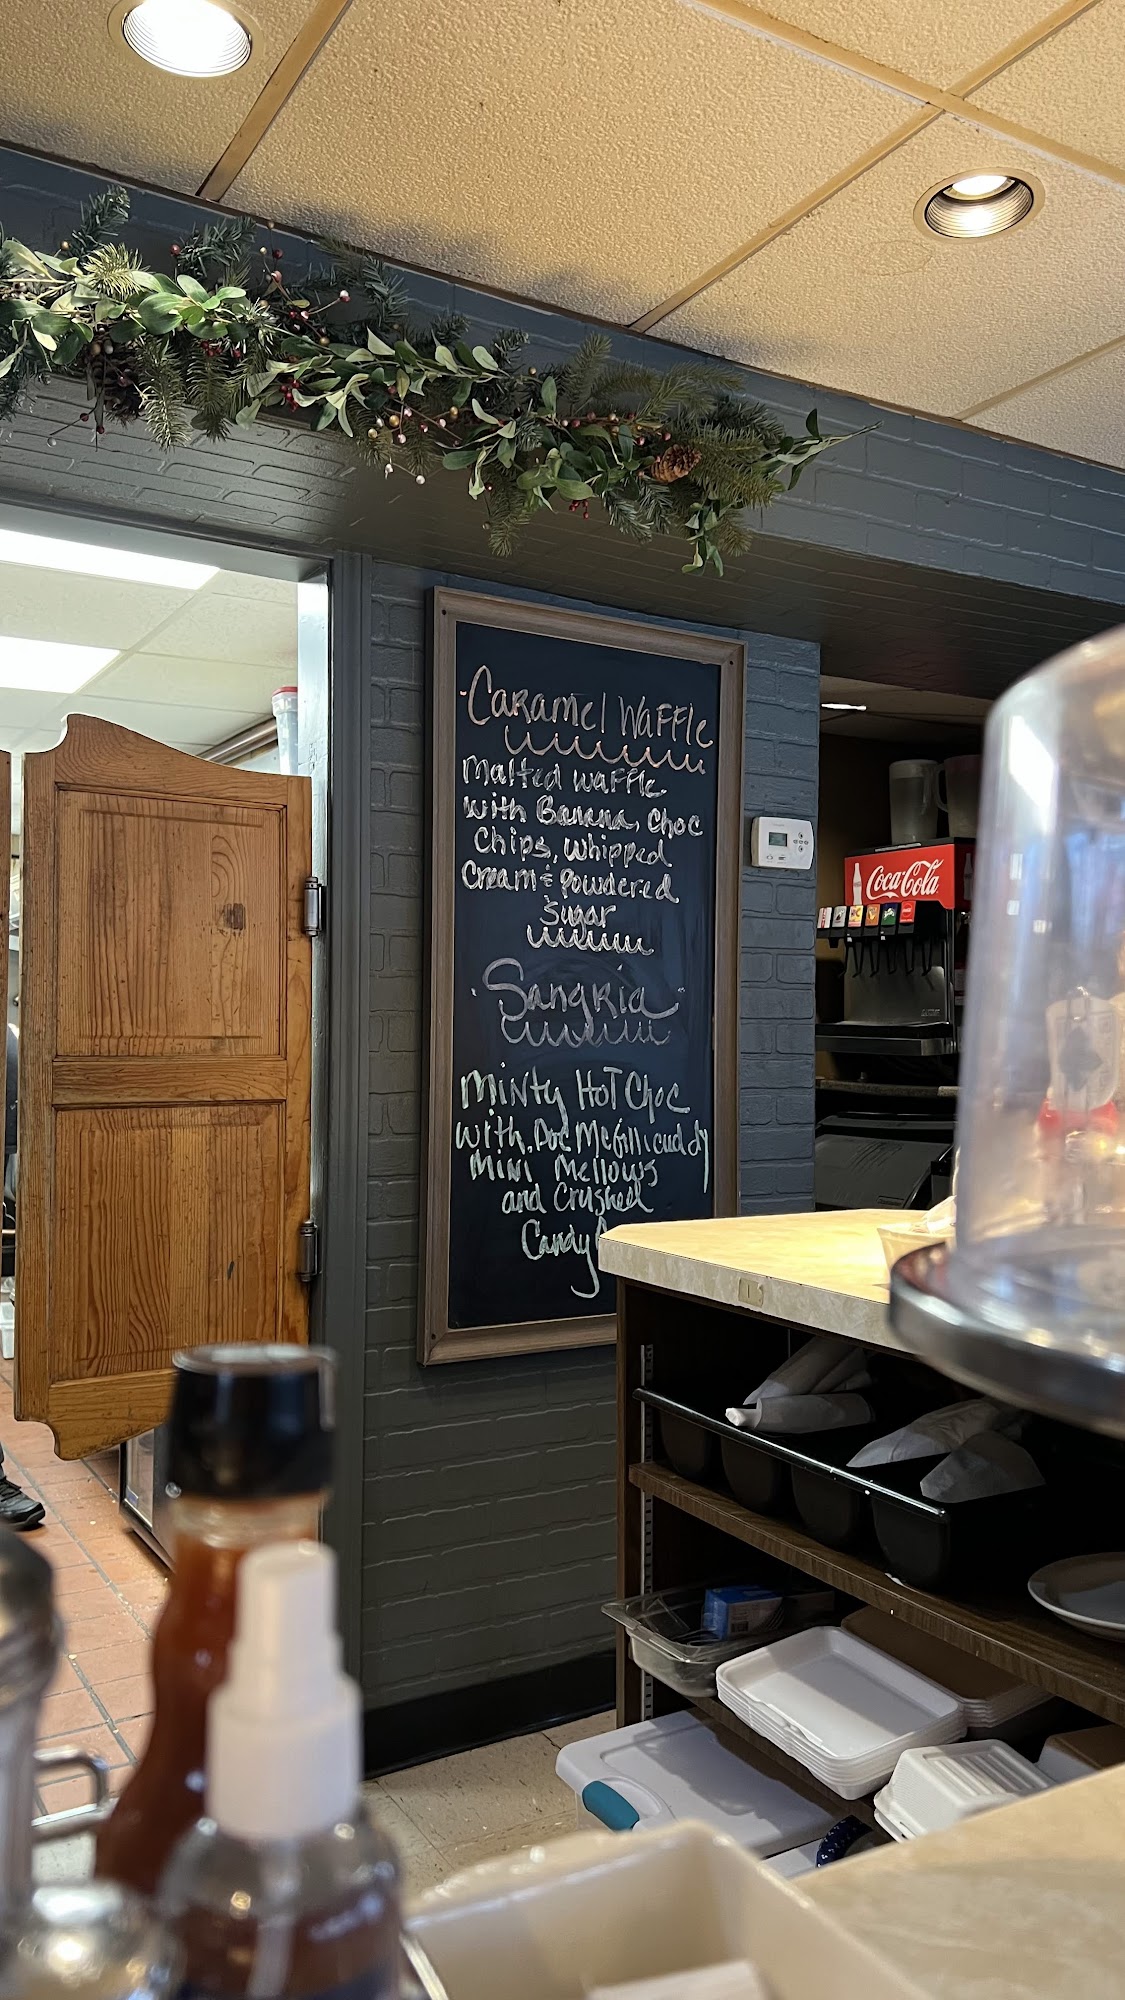 Caramel Waffle
Malted waffle
with Banana, Choc
Chips, whipped
Cream & Powdered
Sugar
Sangria
Minty Hot Choc
with Doc Mcgillicuddy
Mini Mellows
and Crushed
Candy
Coca-Cola